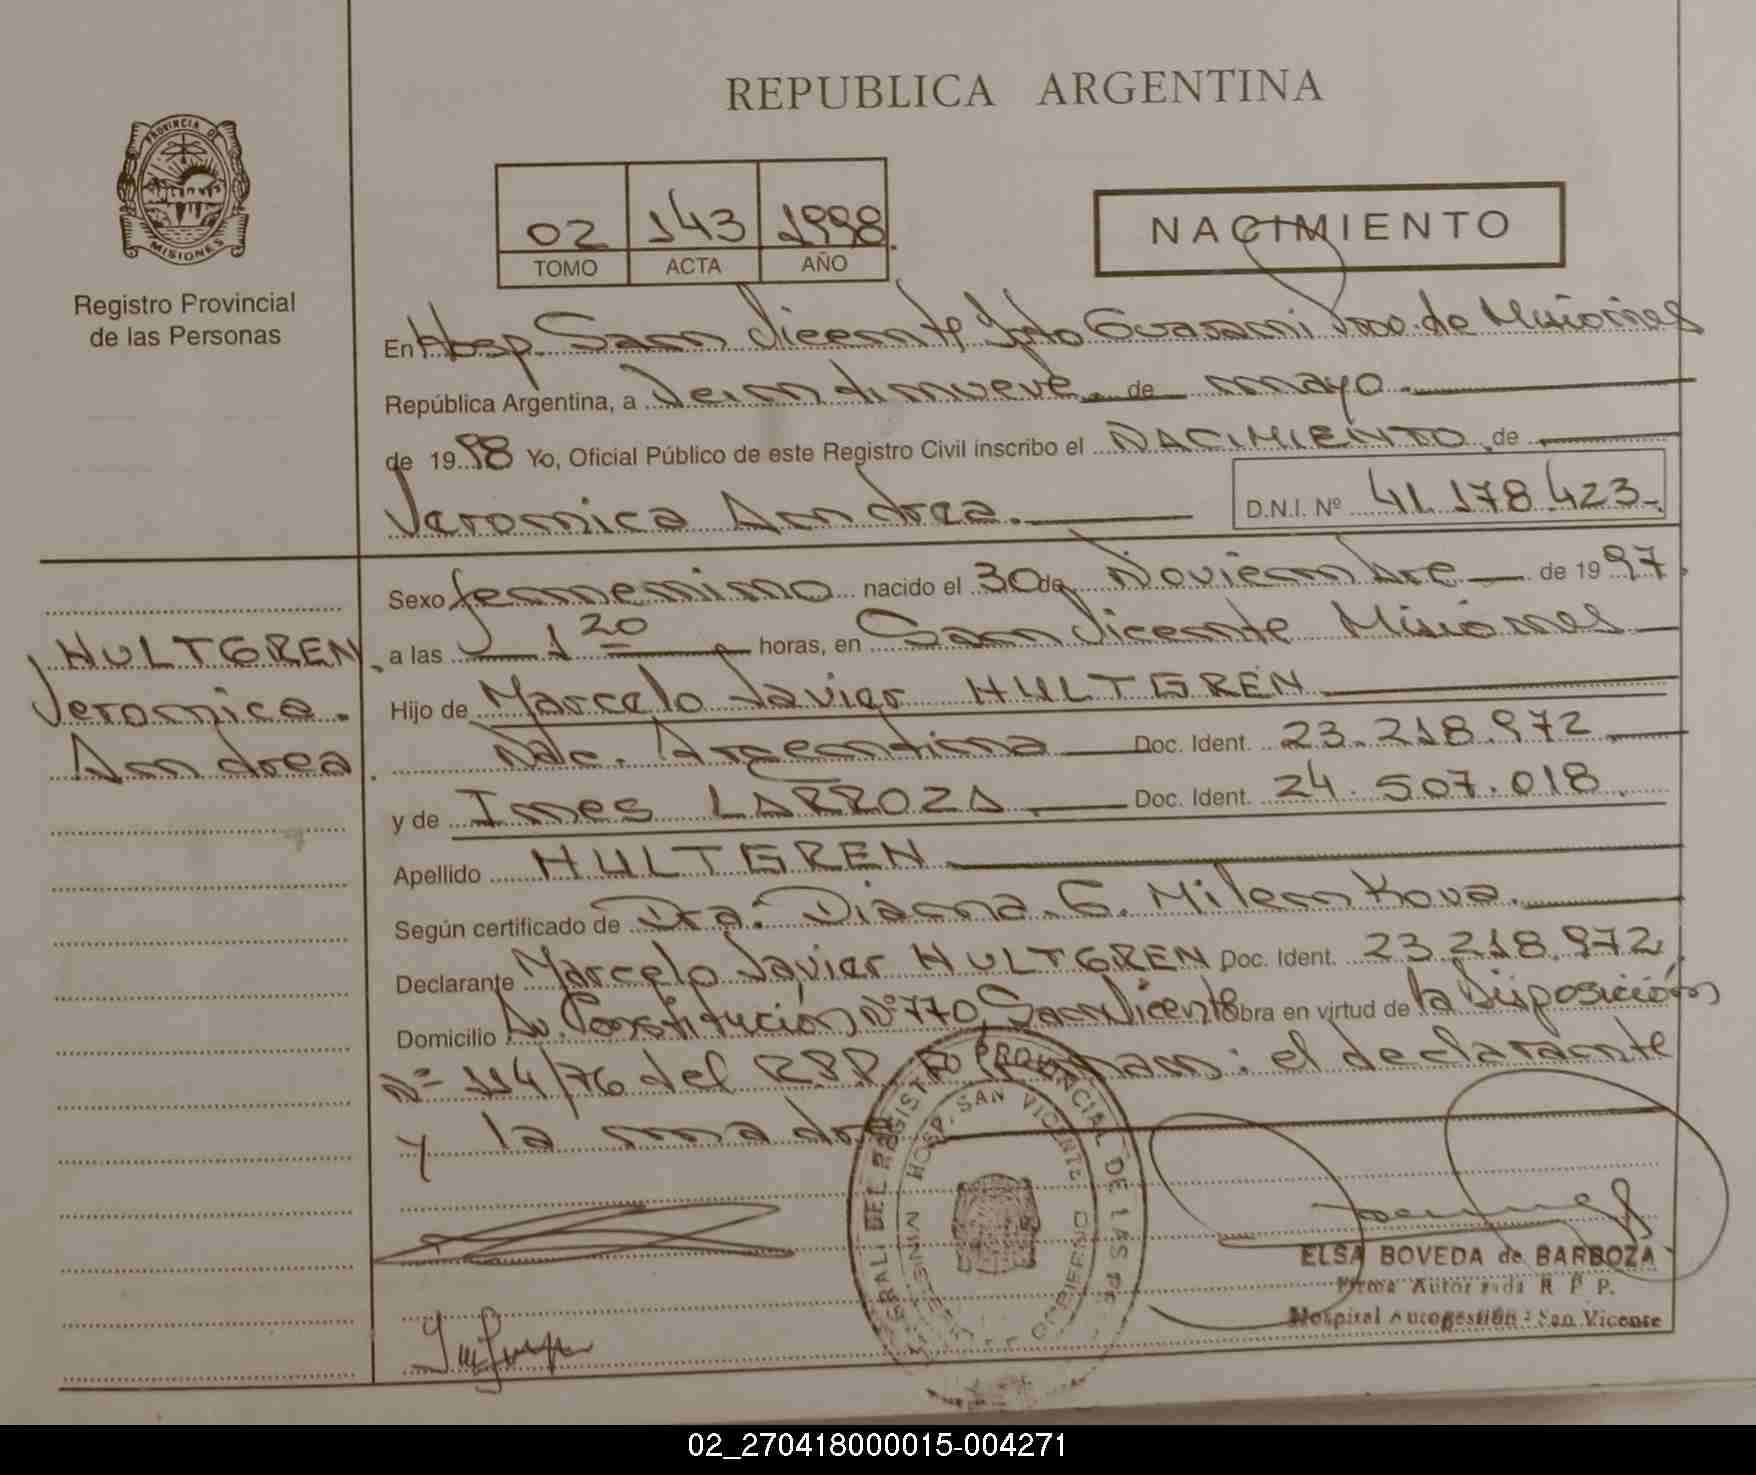 REPUBLICA ARGENTINA
PROVINCIA DE
MISIONES
Registro Provincial
de las Personas
02 143 1998
TOMO ACTA AÑO
NACIMIENTO
En Hosp. San Vicente Dpto Guarani Pro. de Misiones
República Argentina, a Veintinueve de mayo
de 1998 Yo, Oficial Público de este Registro Civil inscribo el NACIMIENTO de
Veronica Andrea. D.N.I. Nº 41.178.423-
Sexo femenino nacido el 30 de Noviembre de 1997
a las 1 20 horas, en San Vicente Misiones
HULTGREN
Veronica
Andrea
Hijo de Marcelo Javier HULTGREN
Nac. Argentina Doc. Ident. 23.218.972
y de Ines LARROZA Doc. Ident. 24.507.018
Apellido HULTGREN
Según certificado de Dra. Diana G. Milenkova.
Declarante Marcelo Javier HULTGREN Doc. Ident. 23.218.972
Domicilio Av. Constitución Nº 770 San Vicente Obra en virtud de la Disposición
Nº 114/76 del R.P.P. : el declarante
y la madre
REGISTRO PROVINCIAL DE LAS
HOSP. SAN VICENTE
MINISTERIO DE GOBIERNO
ELSA BOVEDA de BARBOZA
Firma Autorizada R P P.
Hospital Autogestión - San Vicente
02_270418000015-004271